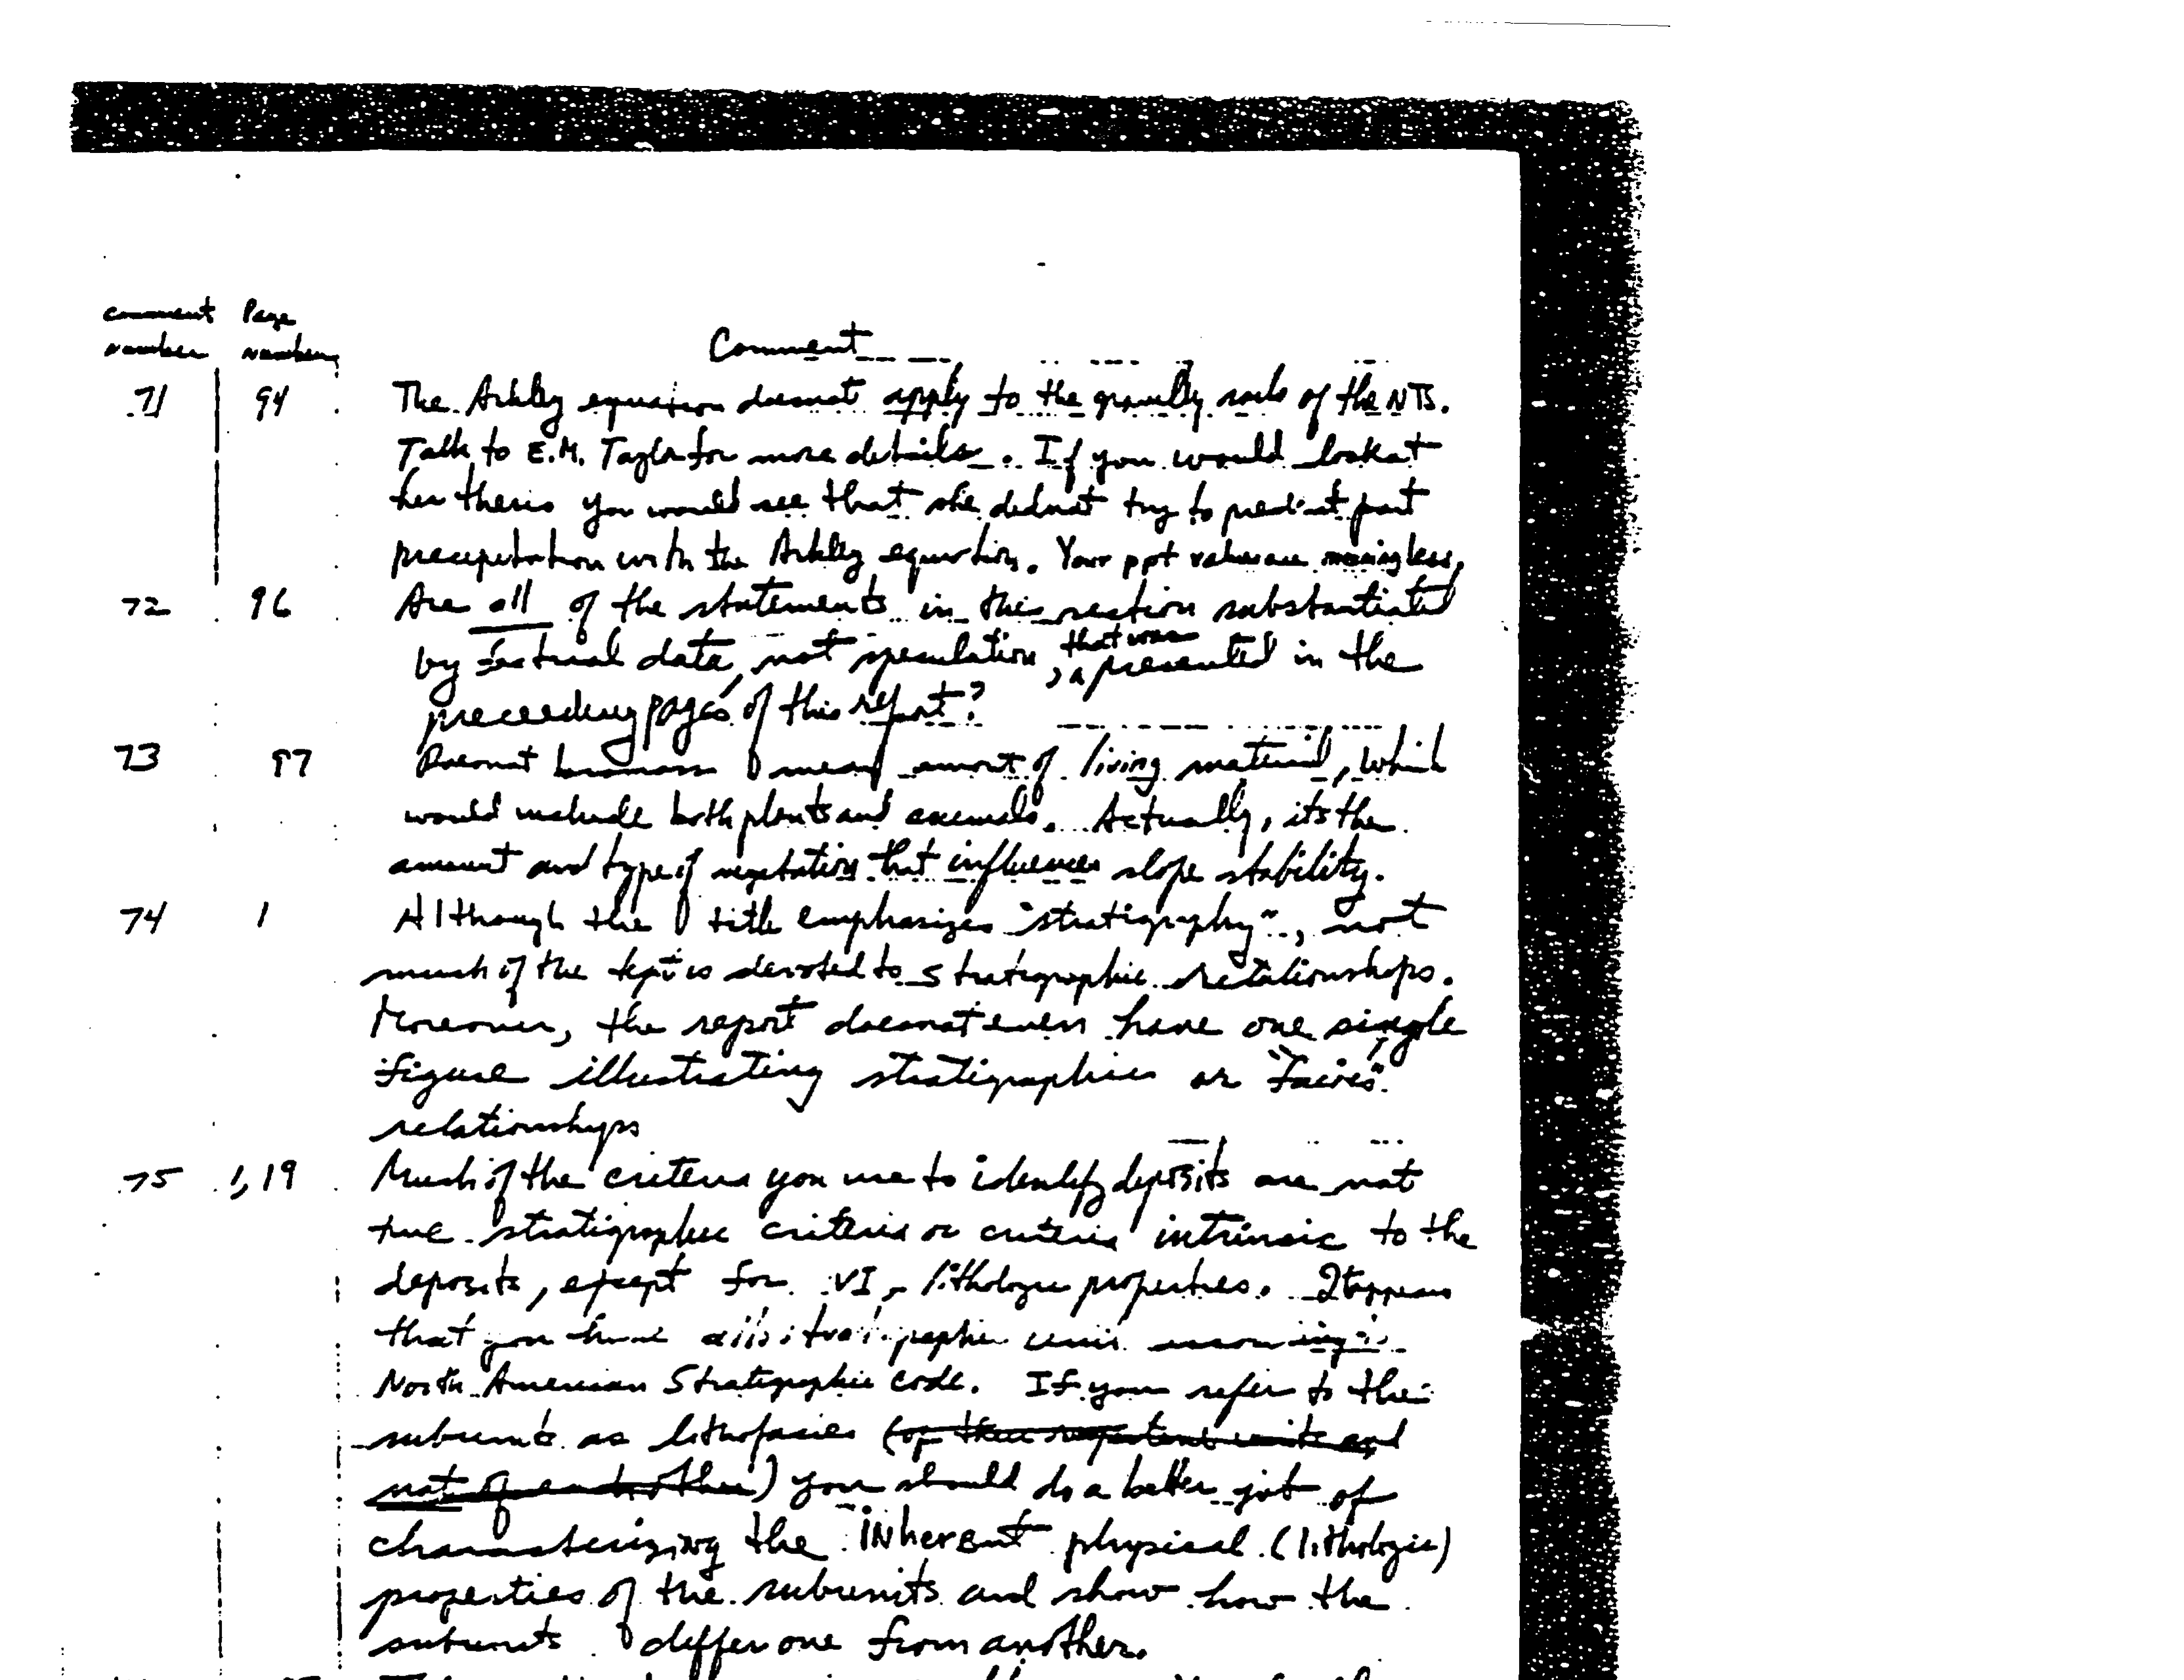 comment Page
number number
Comment
71 94 The Arkley equation doesnot apply to the gravelly soils of the NTS.
Talk to E.M. Taylor for more details. If you would look at
her thesis you would see that she didnot try to predict past
precipitation with the Arkley equation. Your ppt values are meaningless.
72 96 Are all of the statements in this section substantiated
by factual data, not speculation, that was presented in the
preceeding pages of this report?
73 97 Doesnot biomass mean amount of living material, which
would include both plants and animals. Actually, its the
amount and type of vegetation that influences slope stability.
74 1 Although the title emphasizes "stratigraphy", not
much of the text is devoted to stratigraphic relationships.
Moreover, the report doesnot even have one single
figure illustrating stratigraphic or "facies"
relationships
75 1, 19 Much of the criteria you use to identify deposits are not
true stratigraphic criteria or criteria intrinsic to the
deposits, except for VI, lithologic properties. It appears
that you have allostratigraphic units
North American Stratigraphic code. If you refer to the
subunits as lithofacies (of their respective units and
not of each other) you should do a better job of
characterizing the inherent physical (lithologic)
properties of the subunits and show how the
subunits differ one from another.